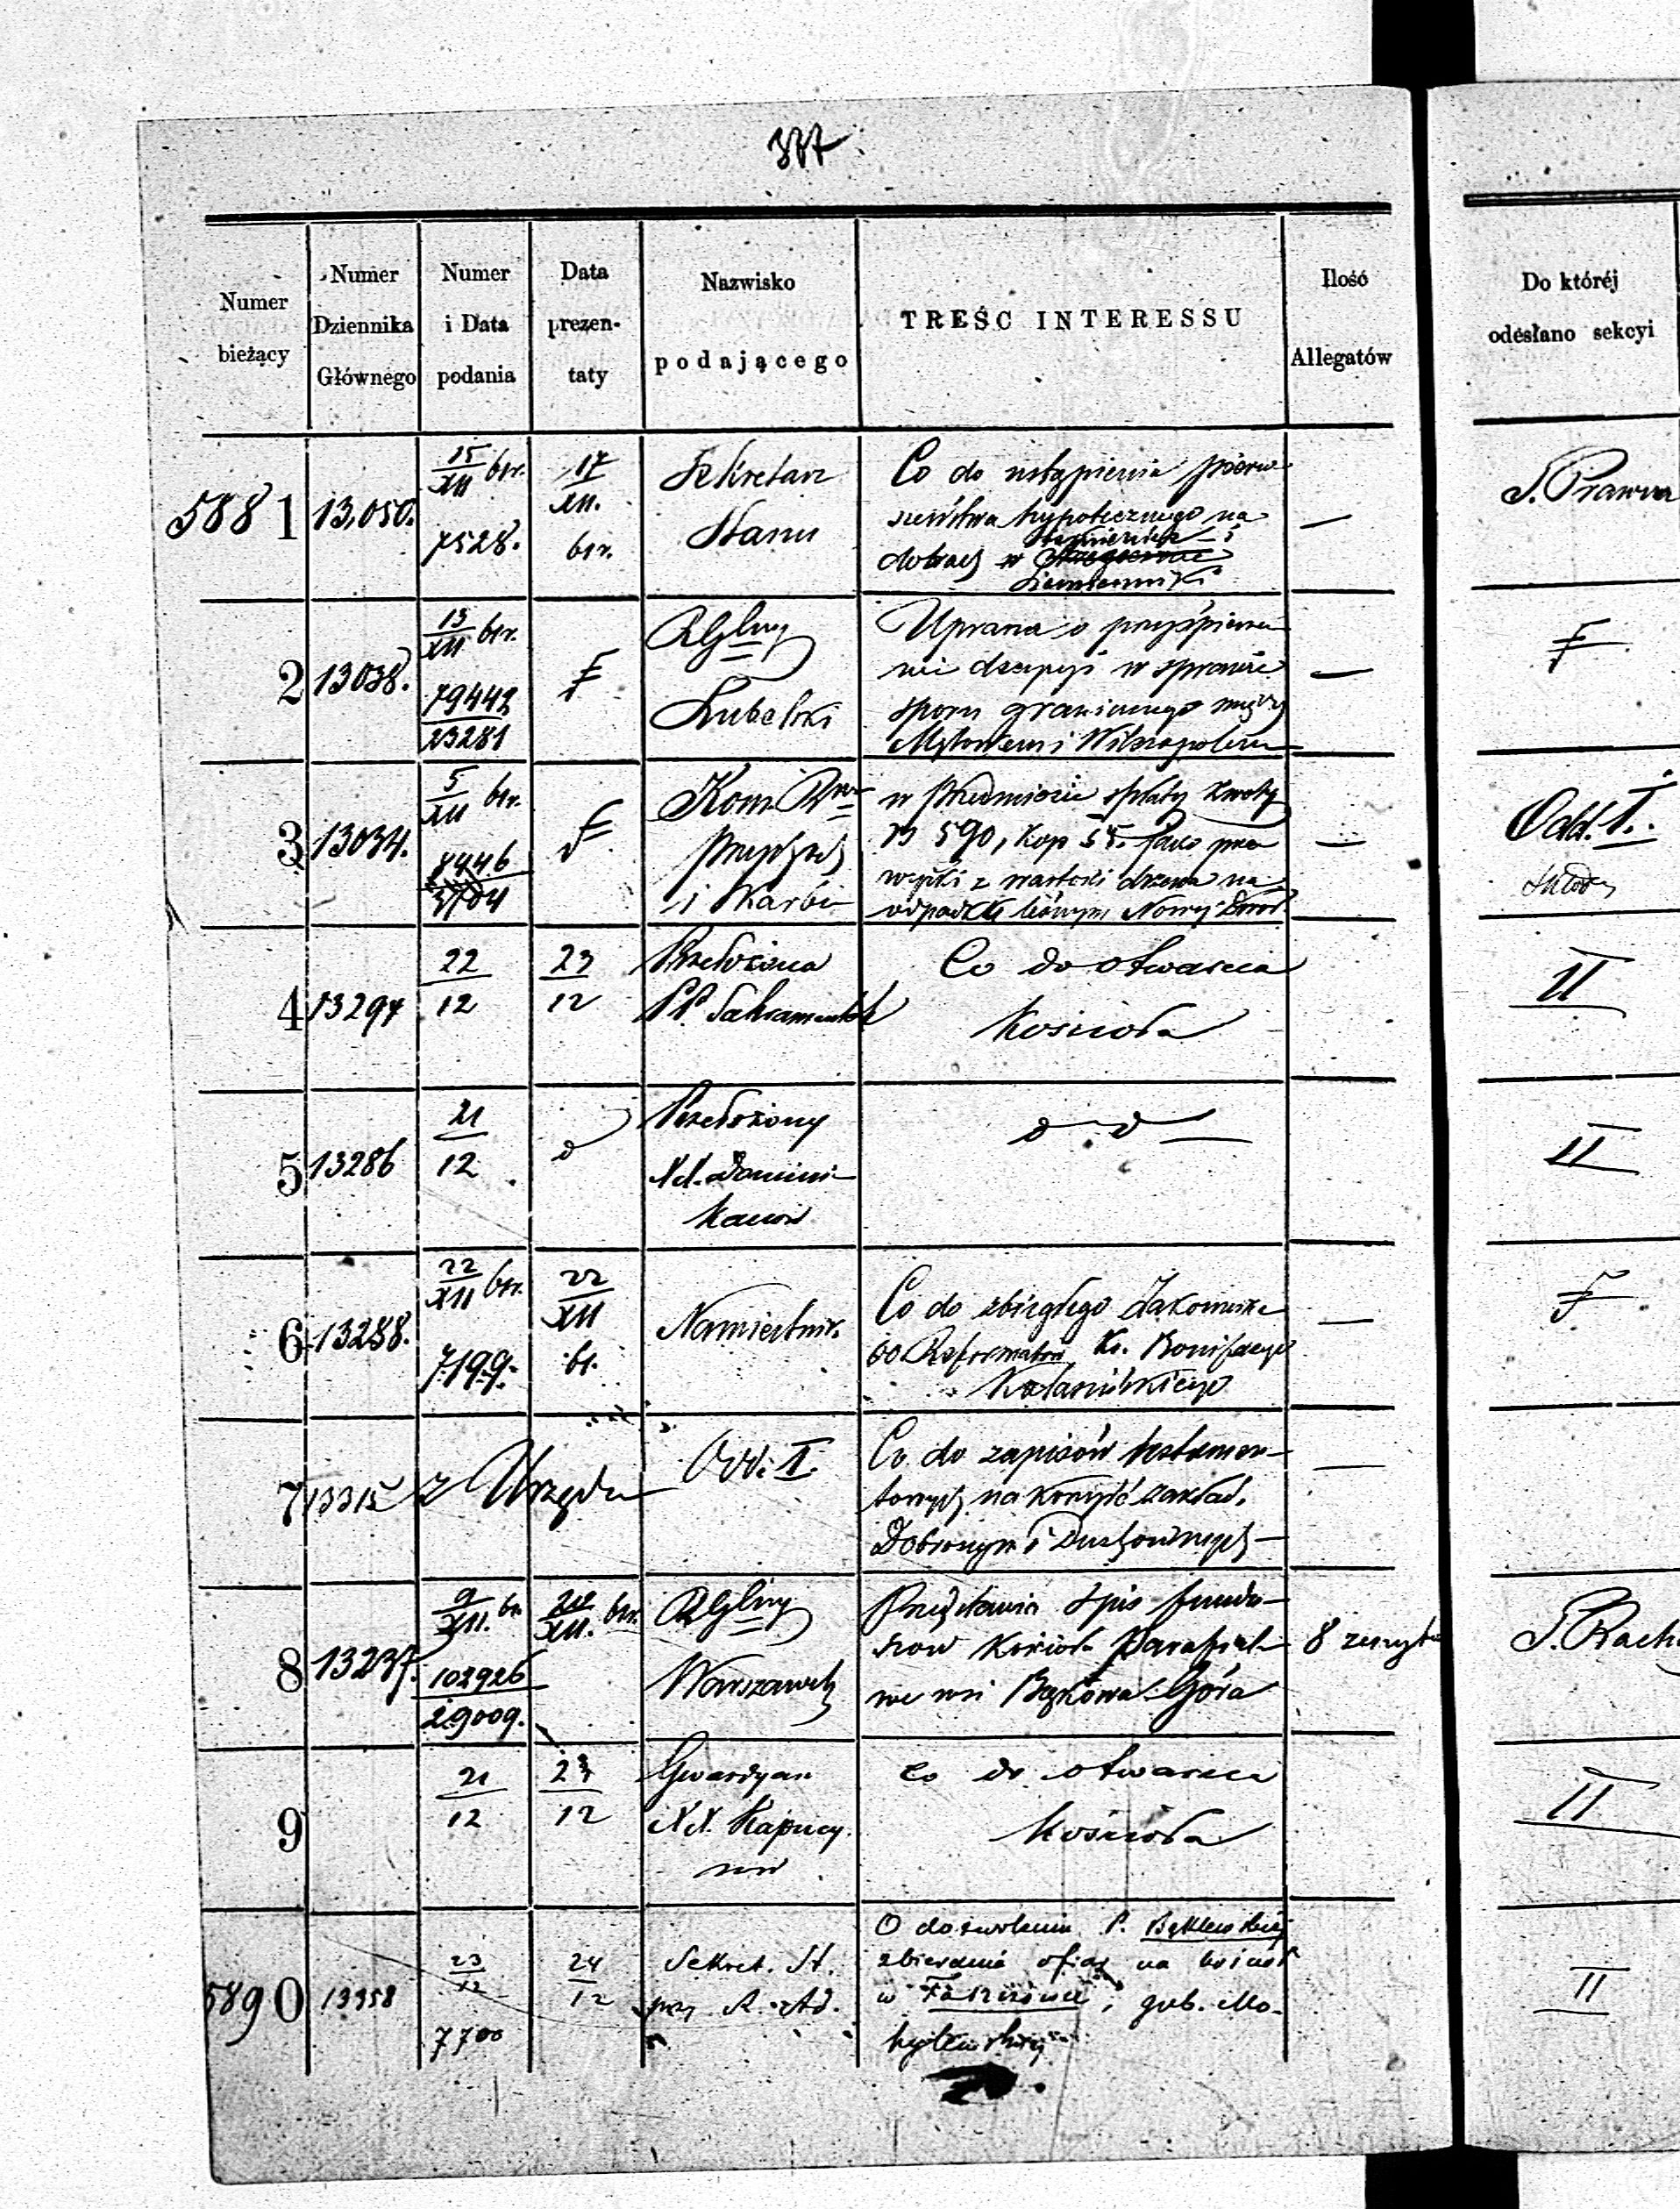 Numer bieżący
Numer Dziennika Głównego
Numer i Data podania
Data prezentaty
Nazwisko podającego
TREŚĆ INTERESSU
Ilość Allegatów
Do któréj odesłano sekcyi
5881 13,050. 15/XII br. 7528. 17/XII. br.
Sekretarz
Stanu
Co do ustąpienia pierw-
szeństwa hypotecznego na
dobrach w
—
S. Prawna
2 13038. 13/XII br. 79442/23281
RGlny
Lubelski
Uprasza o przyśpiesze-
nie decyzyi w sprawie
sporu granicznego między
—
3 13034. 5/XII br. 8446
Kom. Rwa
Przychodów
i Skarbu
w przedmiocie spłaty kwoty
rs 590, kop
z wartości drzewa na
Nowy Dwór
—
Odd. I.
4 13294 22/12 23/12
Przełożona
PP Sakramentek
Co do otwarcia
Kościoła
II
5 13286 21/12 d
Przełożony
XX. Domini-
kanów
d d
II
6 13288. 22/XII br. 7199. 22/XII br.
Namiestnik
Co do zbiegłego Zakonnika
OO. Reformatów, Ks. Bonifacego
—
7 13315 z Urzędu
Odd. I.
Co do zapisów testamen-
towych na korzyść zakład.
Dobroczyn. i Duchownych —
—
8 13237. 9/XII. br. 102926/29009. 20/XII. br.
RGlny
Warszawski
Przedstawia spis fundu-
szów kościoła parafial-
we wsi Bąkowa Góra
8 zeszytów
S. Rach
9 21/12 23/12
Gwardyan
XX. Kapucy-
nów
Co do otwarcia
Kościoła
II
5890 13358 23/12 7700 24/12
Sekret. St.
przy R. Ad.
O dozwolenie P.
zbierania ofiar na kościół
w gub. Mo-
hylewskiej
II